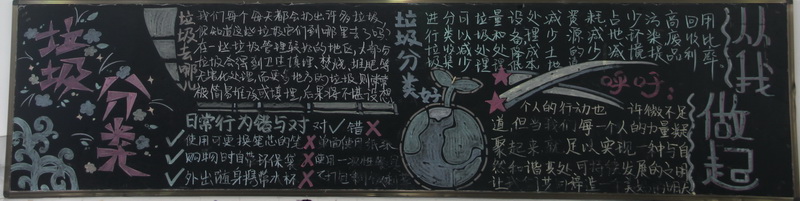 垃圾
分类
垃圾去哪儿
我们每个每天都会扔出许多垃圾,
你知道这些垃圾它们到哪里去了吗?
在一些垃圾管理较好的地区,大部分
垃圾会得到卫生填埋、焚烧、堆肥等
无害化处理,而更多地方的垃圾则常常
被简易堆放或填埋,后果将不堪设想
日常行为错与对 对✓ 错✗
✓使用可更换笔芯的笔
✓购物时自带环保袋
✓外出随身携带水杯
垃圾分类好
进行垃圾
分类收集
可以减少
垃圾处理
量和处理
设备降低
处理成本
减少土地
资源的消
耗减少
占地减
少环境
污染提
高废品
回收利
用比率
呼吁:
个人的行动也许微不足
道,但当我们每一个人的力量凝
聚起来就足以实现一种与自
然和谐共处可持续发展的之
从我
做起